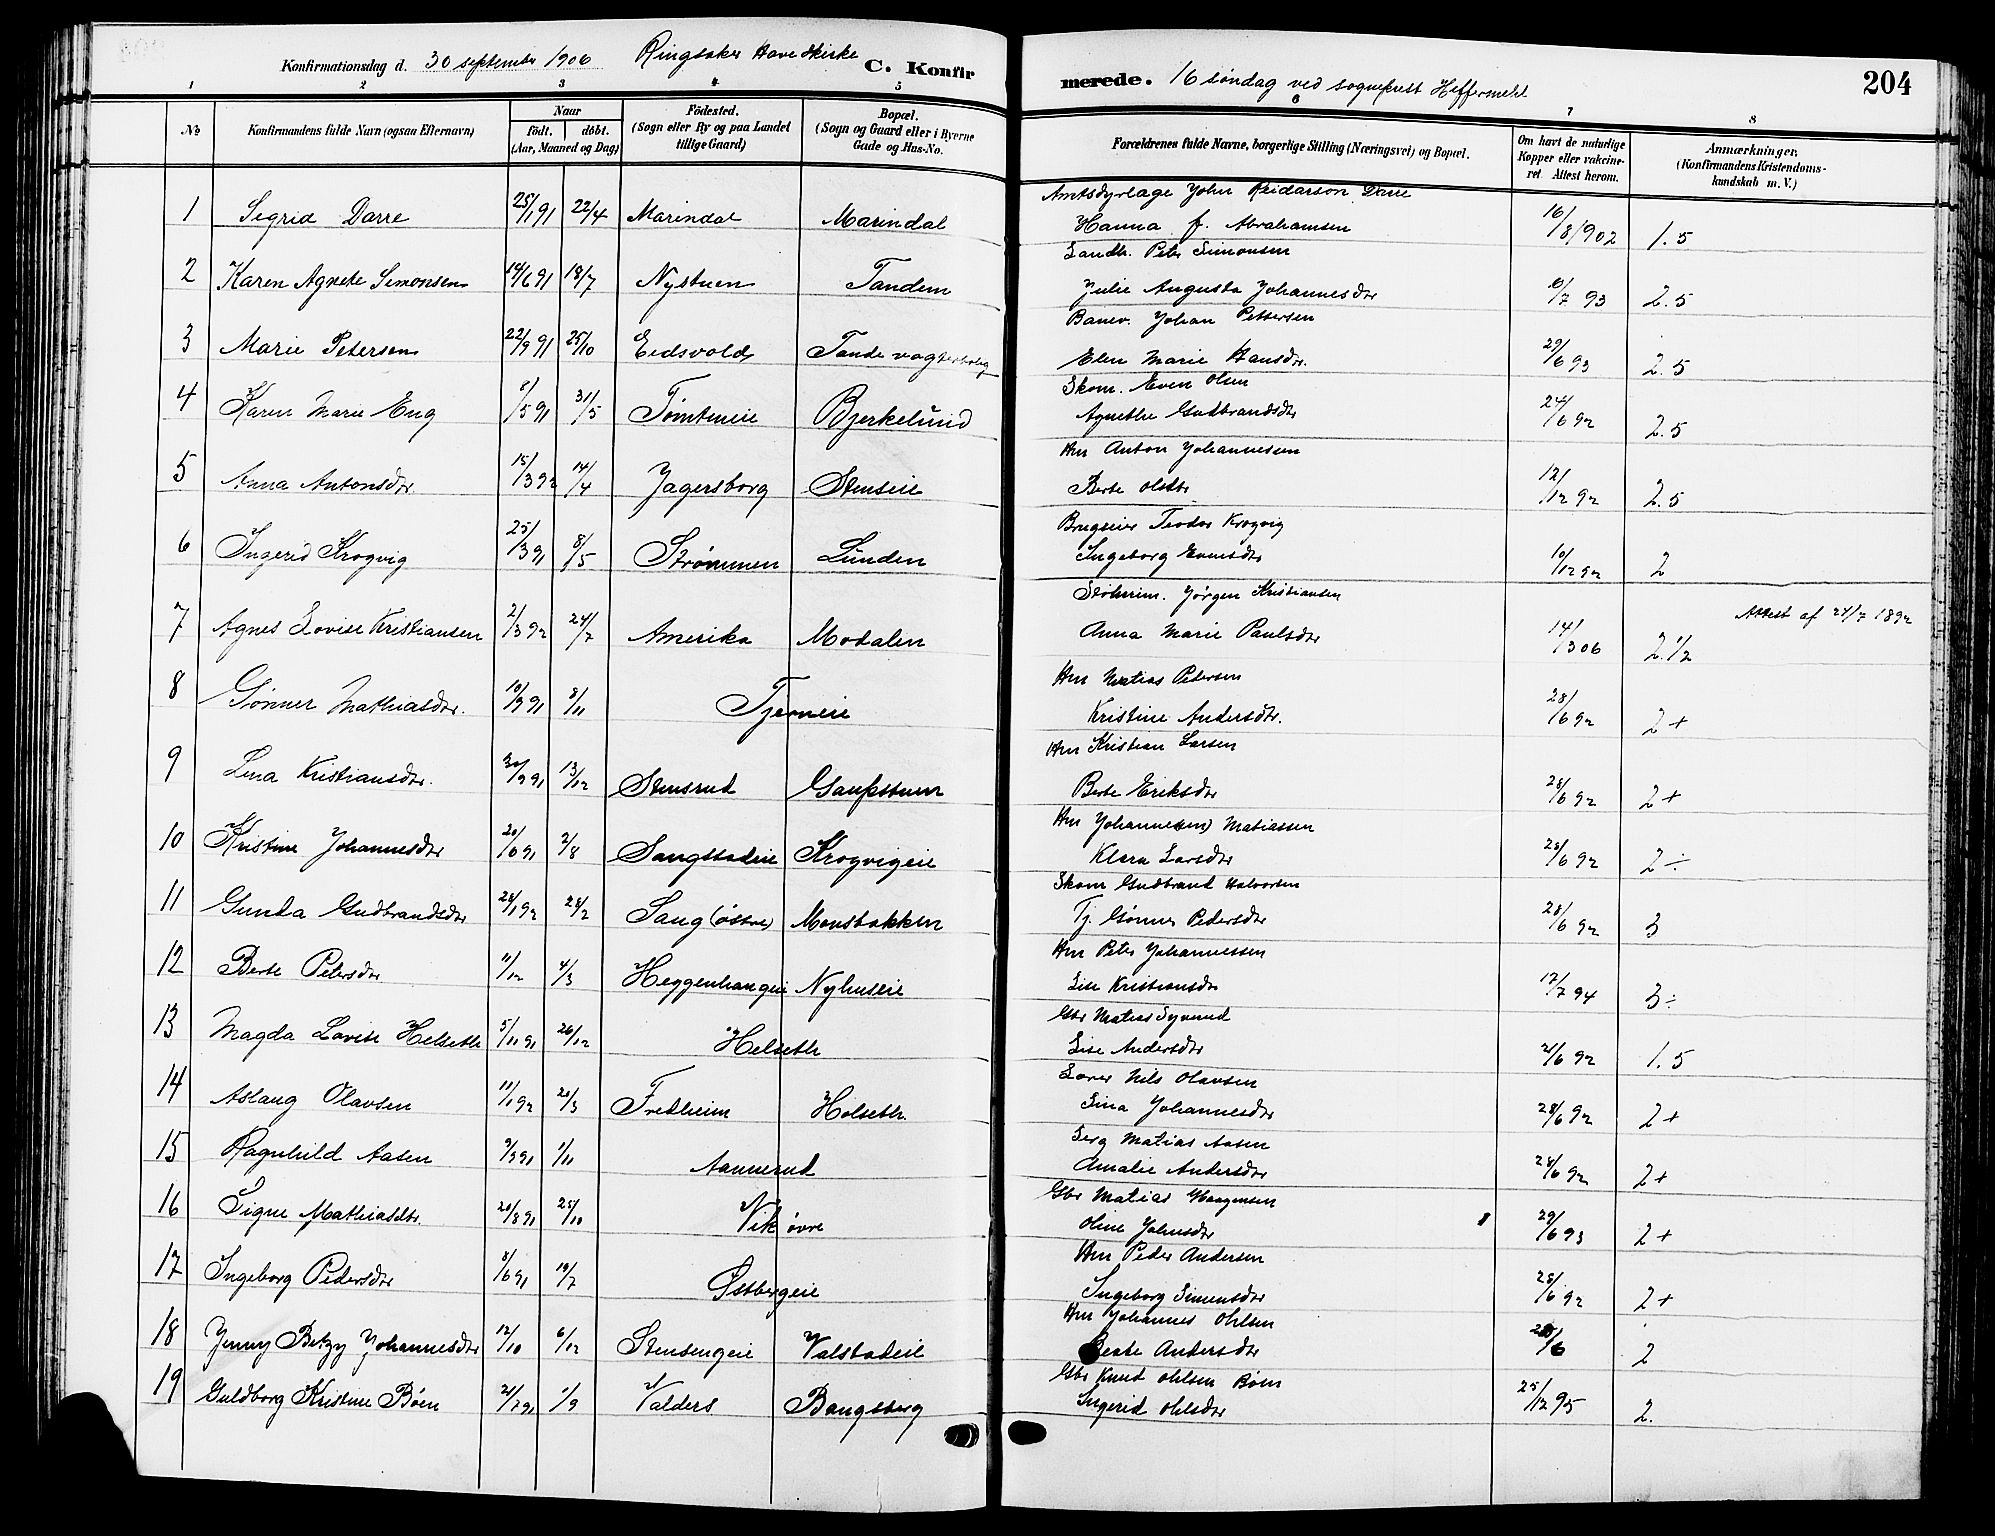 Konfirmationsdag d. 30 september 1906 Ringsaker Hovedkirke C. Konfirmerede. 16 søndag ved sogneprest Heffermehl 204
1 2 3 4 5 6 7 8
No Konfirmandens fulde Navn (ogsaa Efternavn) Naar født. døbt. (Aar, Maaned og Dag) Födested. (Sogn eller By og paa Landet tillige Gaard) Bopæl. (Sogn og Gaard eller i Byerne Gade og Hus-No. Forældrenes fulde Navne, borgerlige Stilling (Næringsvei) og Bopæl. Om havt de naturlige Kopper eller vakcineret. Attest herom. Anmærkninger, (Konfirmandens Kristendomskundskab m. V.)
Amtsdyrlæge John Reidarson Darre
1 Sigrid Darre 25/1 91 22/4 Marindal Marindal Hanna f. Abrahamsen 16/8 1902 1.5
Landh. Peter Simonsen
2 Karen Agnete Simonsen 14/6 91 18/7 Nystuen Tandem Julie Augusta Johannesdtr 6/7 93 2.5
Banev. Johan Pettersen
3 Marie Petersen 22/9 91 25/10 Eidsvold Tande vogterbolig Elen Marie Hansdtr. 29/6 93 2.5
Skom. Even Olsen
4 Karen Marie Eng 8/5 91 31/5 Tømteneie Bjerkelund Agnethe Gudbrandsdtr 24/6 92 2.5
Hm Anton Johannessen
5 Anna Antonsdtr 15/3 92 14/4 Jagersborg Stenseie Berte Olsdtr 12/12 92 2.5
Brugseier Teodor Krogvig
6 Ingerid Krogvig 25/3 91 8/5 Strømmen Lunden Ingeborg Evensdtr 10/12 92 2
Jørgen Kristiansen
7 Agnes Lovise Kristiansen 2/3 92 24/7 Amerika Modalen Anna Marie Paulsdtr 14/3 06 2.1/2 Attest af 24/7 1892
Hm Matias Pedersen
8 Gønner Mathiasdtr. 10/9 91 8/11 Tjerneie Kristine Andersdtr. 28/6 92 2+
Hm Kristian Larsen
9 Lina Kristiansdtr. 30/9 91 13/12 Stensrud Gaupstuen Berte Eriksdtr 28/6 92 2+
Hm Johannes Matiassen
10 Kristine Johannesdtr 20/6 91 2/8 Sangstadeie Krogvigeie Klara Larsdtr 28/6 92 2÷
Skom Gudbrand Halvorsen
11 Gunda Gudbrandsdtr 24/1 92 28/2 Sang (østre) Monsbakken Tj. Gønner Pedersdtr 28/6 92 3
Hm Peter Johannessen
12 Berte Petersdtr 11/12 4/3 Heggenhaugeie Nyhuseie Lise Kristiansdtr 12/7 94 3÷
Gbr Matias Syverud
13 Magda Lovise Helseth 5/11 91 26/12 Helseth Lise Andersdtr 21/6 92 1.5
Nils Olavsen
14 Aslaug Olavsen 11/1 92 20/3 Fredheim Holseth. Lina Johannesdtr 28/6 92 2+
Matias Aasen
15 Ragnhild Aasen 9/9 91 1/11 Aannerud Amalie Andersdtr 28/6 92 2+
Gbr Matias Haagensen
16 Signe Mathiasdtr. 20/8 91 25/10 Vik øvre Oline Johnsdtr 29/6 93 2+
Hm Peder Andersen
17 Ingeborg Pedersdtr 8/6 91 19/7 Østbergeie Ingeborg Simensdtr 28/6 92 2+
Hm Johannes Ohlsen
18 Jenny Betzy Johannesdtr 12/10 6/12 Stensengeie Valstadeie Beate Andersdtr 28/6 2
Gbr Knud Ohlsen Bøen
19 Guldborg Kristine Bøen 21/7 91 1/9 Valders Bangsberg Ingerid Ohlsdtr 25/12 95 2.